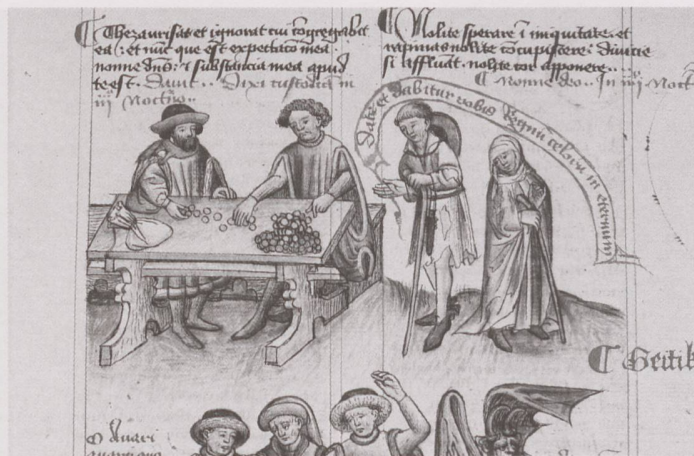 Thezaurisat et ignorat cui cõgregabit
ea. et nũc que est expectacio mea
nonne dñs. et substancia mea apud
te est. Dauit. Dixi custodiã in
iij Nocturno
Nolite sperare ĩ iniquitate. et
rapinas nolite cõcupiscere. diuicie
si affluãt. nolite cor apponere.
Nonne deo. In iij Noct
Date et dabitur vobis Regnũ celorũ in eternum
Geitik
O Auari